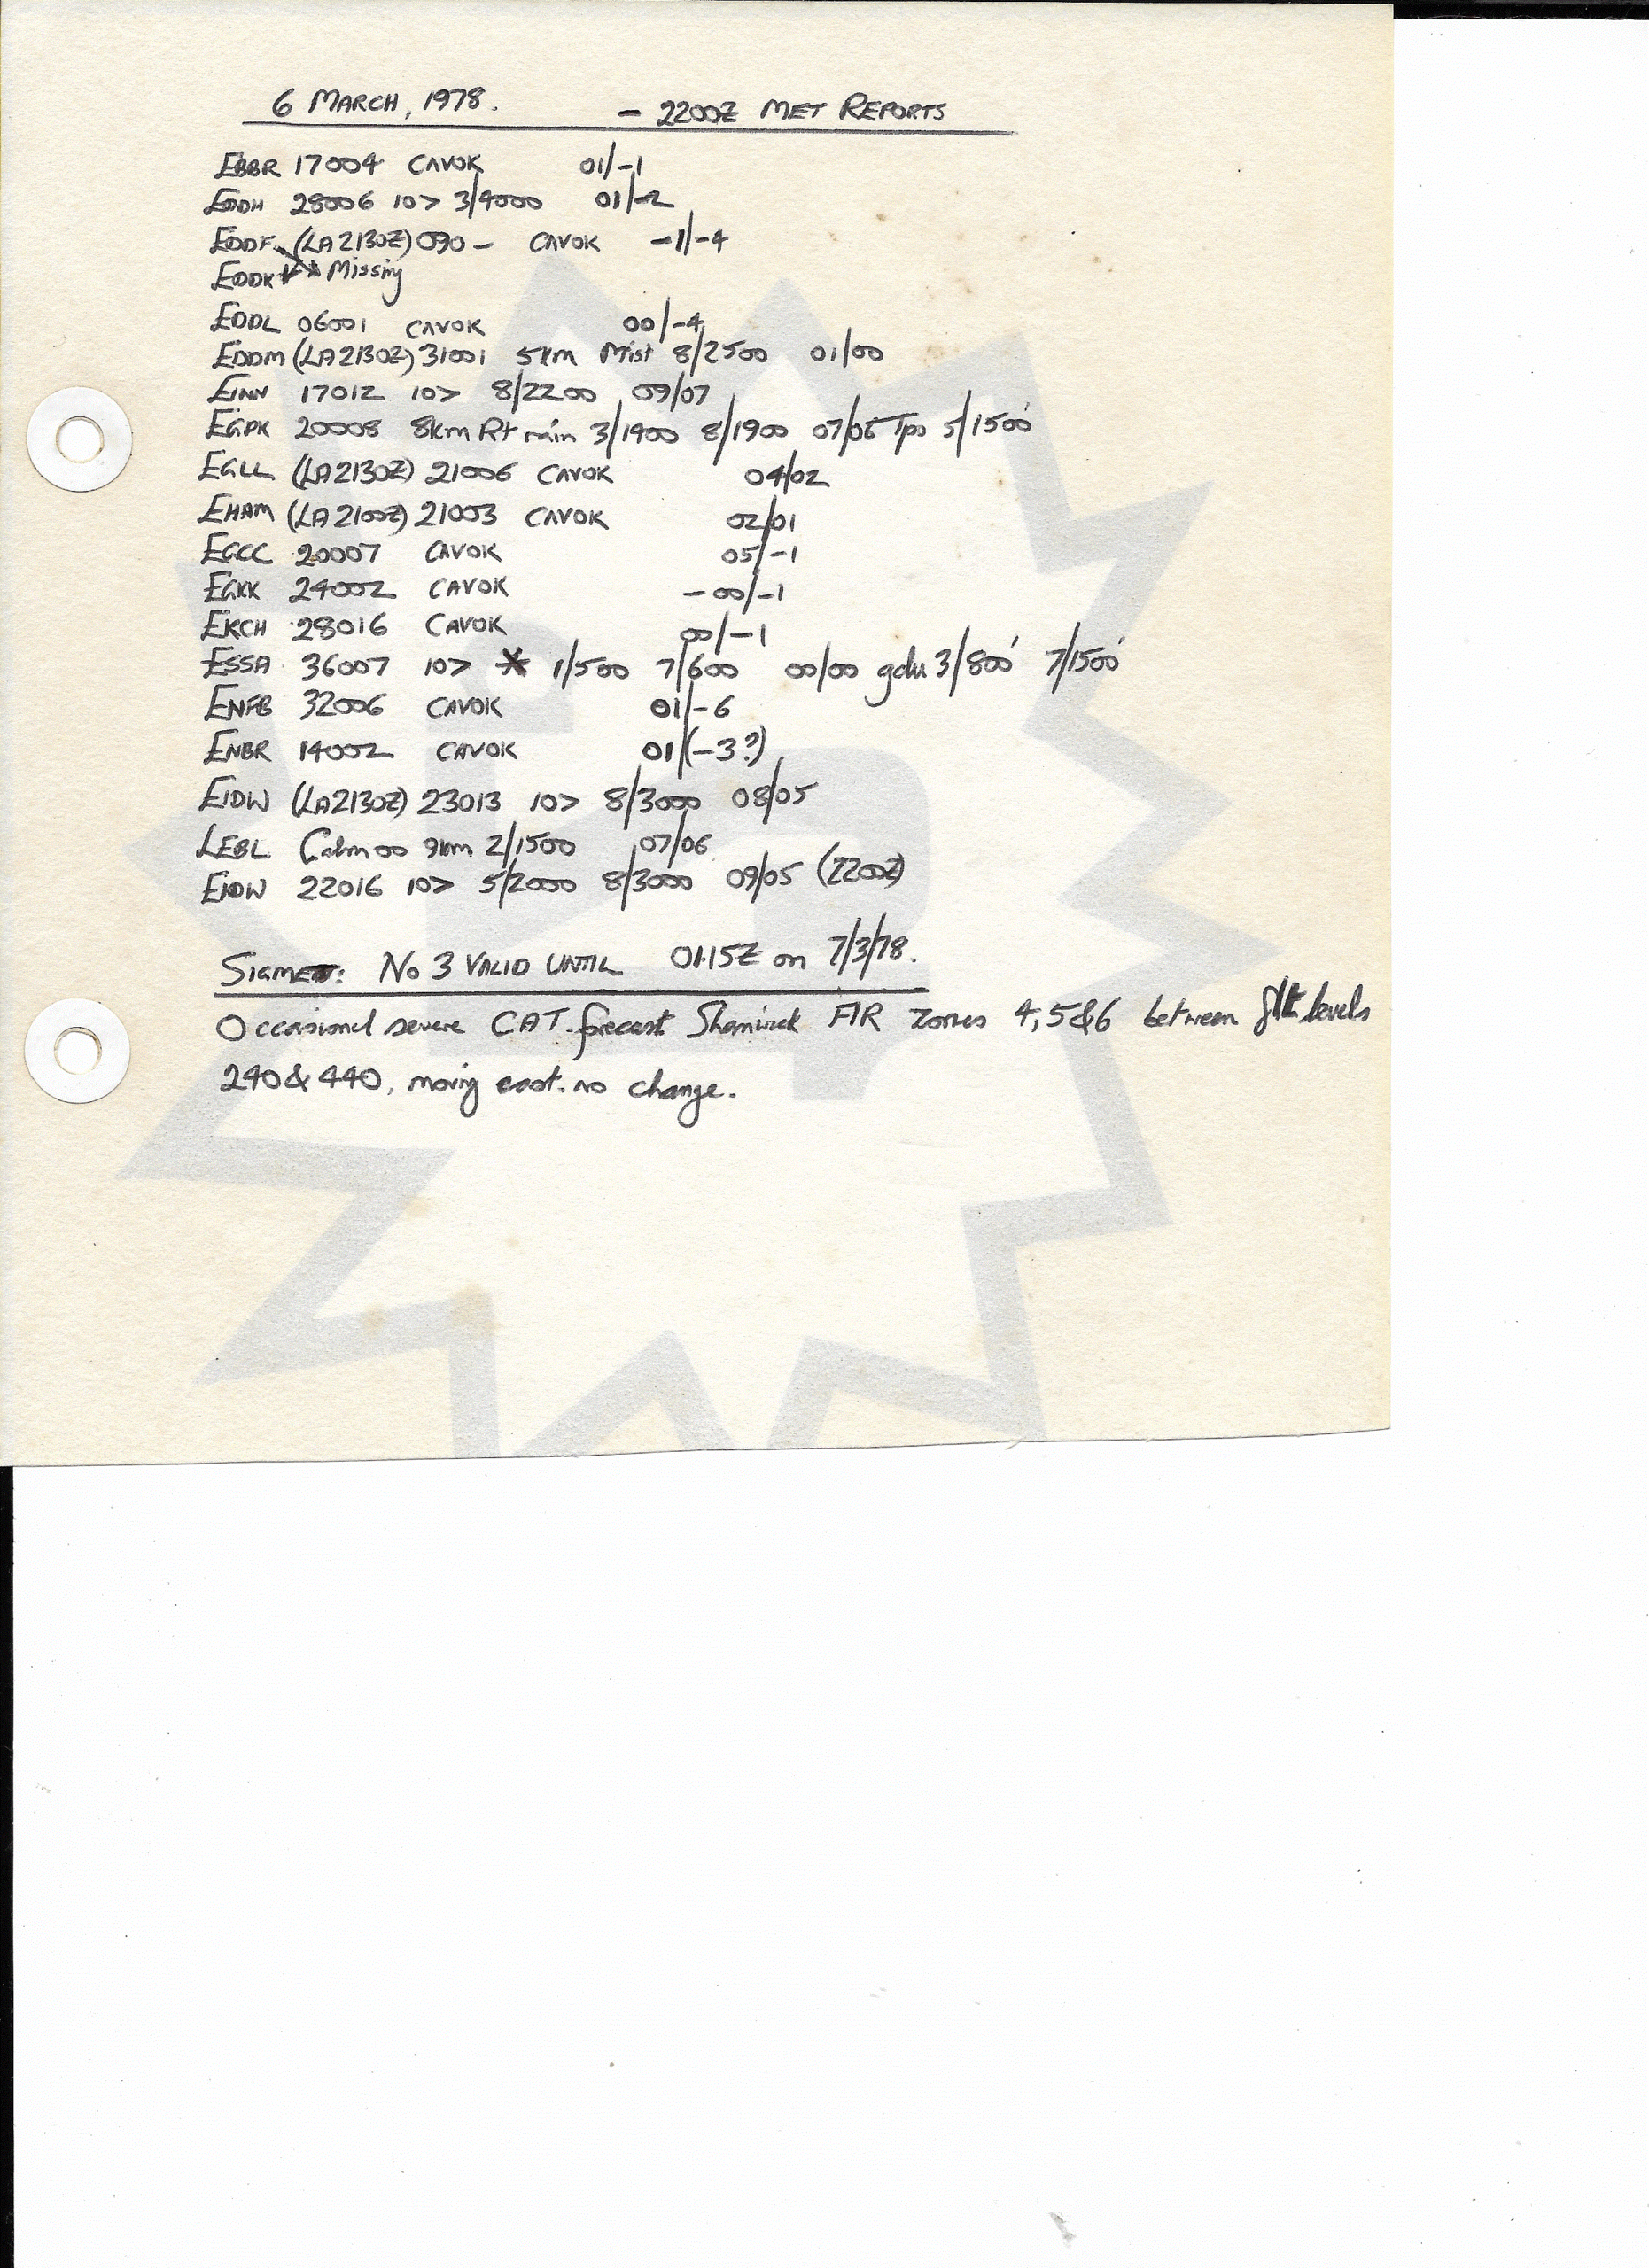 6 MARCH, 1978. - 2200Z MET REPORTS
EBBR 17004 CAVOK 01/-1
EDDH 28006 10> 3/4000 01/-2
EDDF (LA2130Z) 090- CAVOK -1/-4
EDDK Missing
EDDL 06001 CAVOK 00/-4
EDDM (LA2130Z) 31001 5km Mist 8/2500 01/00
EINN 17012 10> 8/2200 09/07
EGPK 20008 8km R+ rain 3/1400 8/1900 07/06 Tpo 5/1500'
EGLL (LA2130Z) 21006 CAVOK 04/02
EHAM (LA2100Z) 21003 CAVOK 02/01
EGCC 20007 CAVOK 05/-1
EGKK 24002 CAVOK -00/-1
EKCH 28016 CAVOK 00/-1
ESSA 36007 10> 1/500 7/600 00/00 gdu 3/800' 7/1500'
ENFB 32006 CAVOK 01/-6
ENBR 14002 CAVOK 01/(-3?)
EIDW (LA2130Z) 23013 10> 8/3000 08/05
LEBL Calm 00 9km 2/1500 07/06
EIDW 22016 10> 5/2000 8/3000 09/05 (2200Z)
SIGMET: No 3 VALID UNTIL 0115Z on 7/3/78.
Occasional severe CAT forecast Shanwick FIR zones 4,5&6 between flt levels
240&440, moving east. no change.